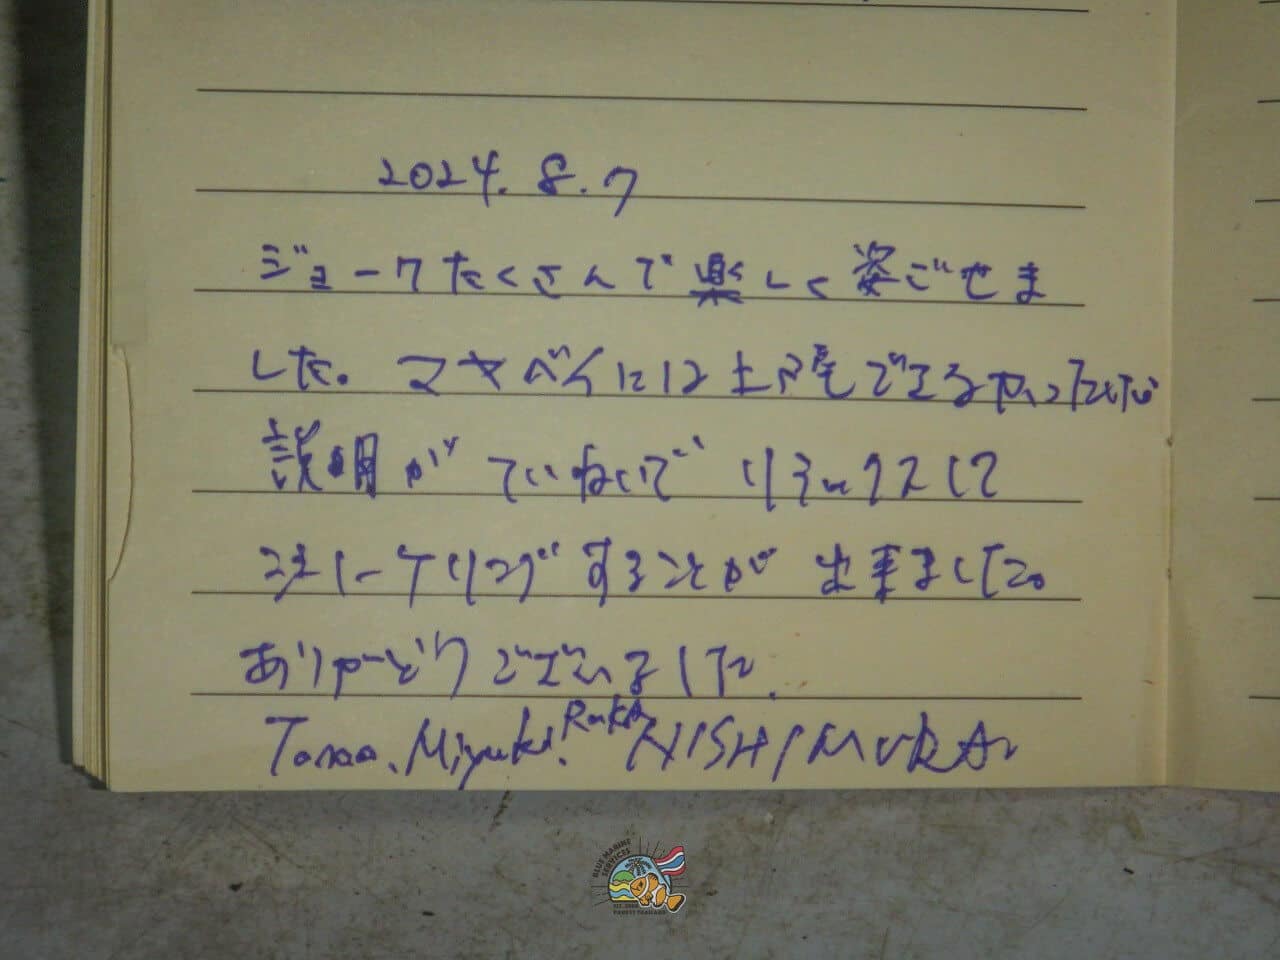 2024.8.7
ジョークたくさんで楽しく姿ごせま
した。マヤベイには
説明がていねいで リラックスして
シュノーケリングすることが 出来ました。
ありがとうございました.
Miyuki. NISHIMURA
BLUE MARINE SERVICES
PHUKET THAILAND